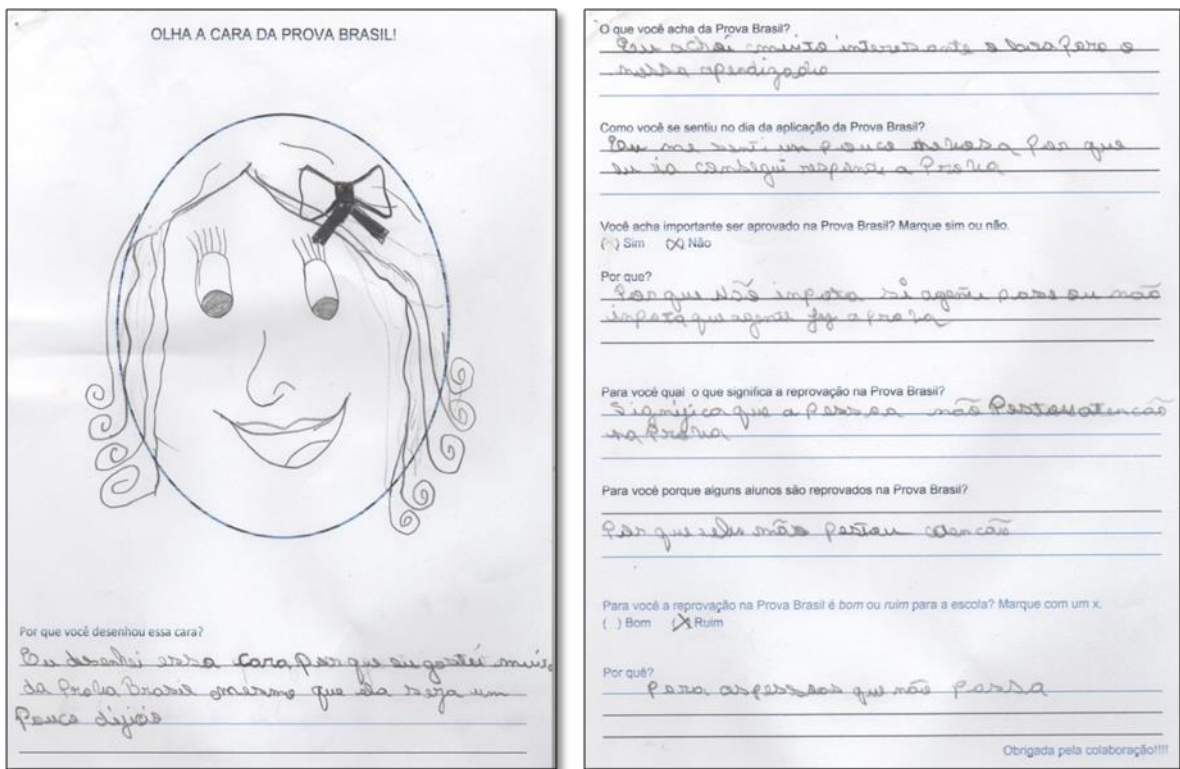 OLHA A CARA DA PROVA BRASIL!
Por que você desenhou essa cara?
Eu desenhei essa cara porque eu gostei muito
da Prova Brasil mesmo que ela seza um
Pouco dificio
O que você acha da Prova Brasil?
Eu achei muito interesante e boa para o
nossa apendizado
Como você se sentiu no dia da aplicação da Prova Brasil?
Eu me senti um pouco nervosa Por que
eu ia consegui responde a Prova
Você acha importante ser aprovado na Prova Brasil? Marque sim ou não.
( ) Sim (X) Não
Por que?
Porque Não inpota si agente pase ou não
inpota que agente fez a prova
Para você qual o que significa a reprovação na Prova Brasil?
Significa que a Pessoa não Pestou atencão
na Prova
Para você porque alguns alunos são reprovados na Prova Brasil?
Por que eles não pestou atencão
Para você a reprovação na Prova Brasil é bom ou ruim para a escola? Marque com um x.
( ) Bom (X) Ruim
Por quê?
Para as pessoas que não Passa
Obrigada pela colaboração!!!!